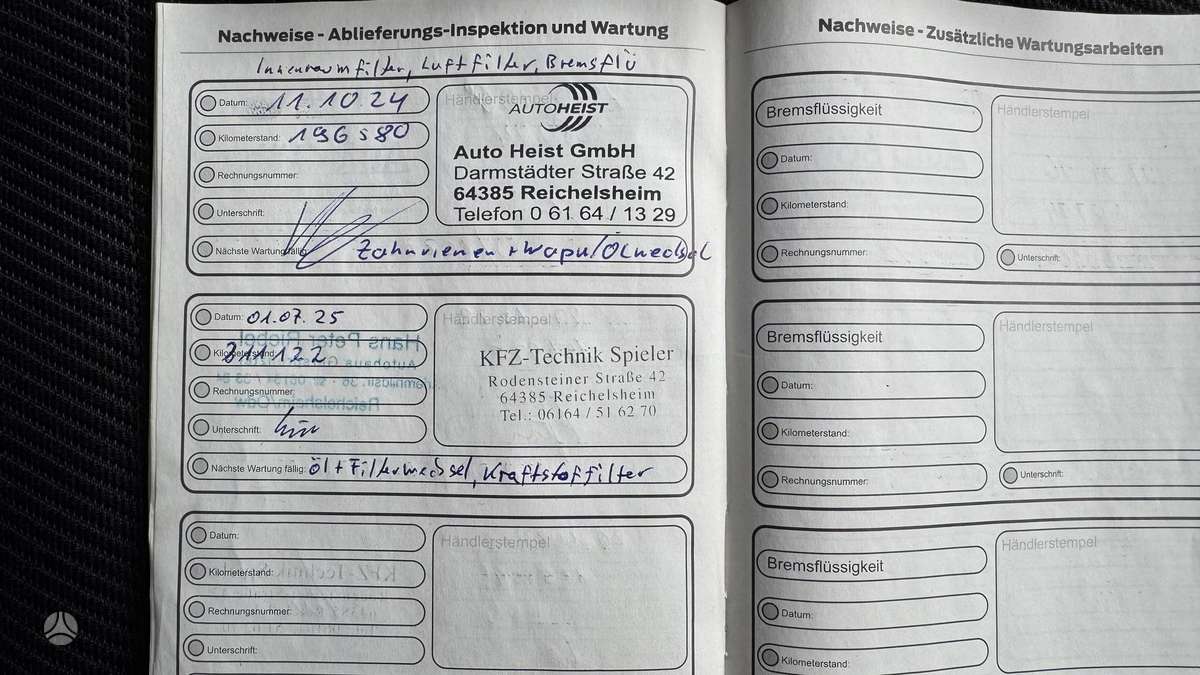 Nachweise - Ablieferungs-Inspektion und Wartung
Innenraumfilter, Luftfilter, Bremsflü
Datum: 11.10.24
Kilometerstand: 196580
Rechnungsnummer:
Unterschrift:
Nächste Wartung fällig: Zahnriemen + Wapu/Ölwechsel
Händlerstempel
AUTOHEIST
Auto Heist GmbH
Darmstädter Straße 42
64385 Reichelsheim
Telefon 0 61 64 / 13 29
Datum: 01.07.25
Kilometerstand: 211122
Rechnungsnummer:
Unterschrift:
Nächste Wartung fällig: Öl + Filterwechsel, Kraftstoffilter
Händlerstempel
KFZ-Technik Spieler
Rodensteiner Straße 42
64385 Reichelsheim
Tel.: 06164 / 51 62 70
Datum:
Kilometerstand:
Rechnungsnummer:
Unterschrift:
Händlerstempel
Nachweise - Zusätzliche Wartungsarbeiten
Bremsflüssigkeit
Datum:
Kilometerstand:
Rechnungsnummer:
Händlerstempel
Unterschrift:
Bremsflüssigkeit
Datum:
Kilometerstand:
Rechnungsnummer:
Händlerstempel
Unterschrift:
Bremsflüssigkeit
Datum:
Kilometerstand:
Händlerstempel